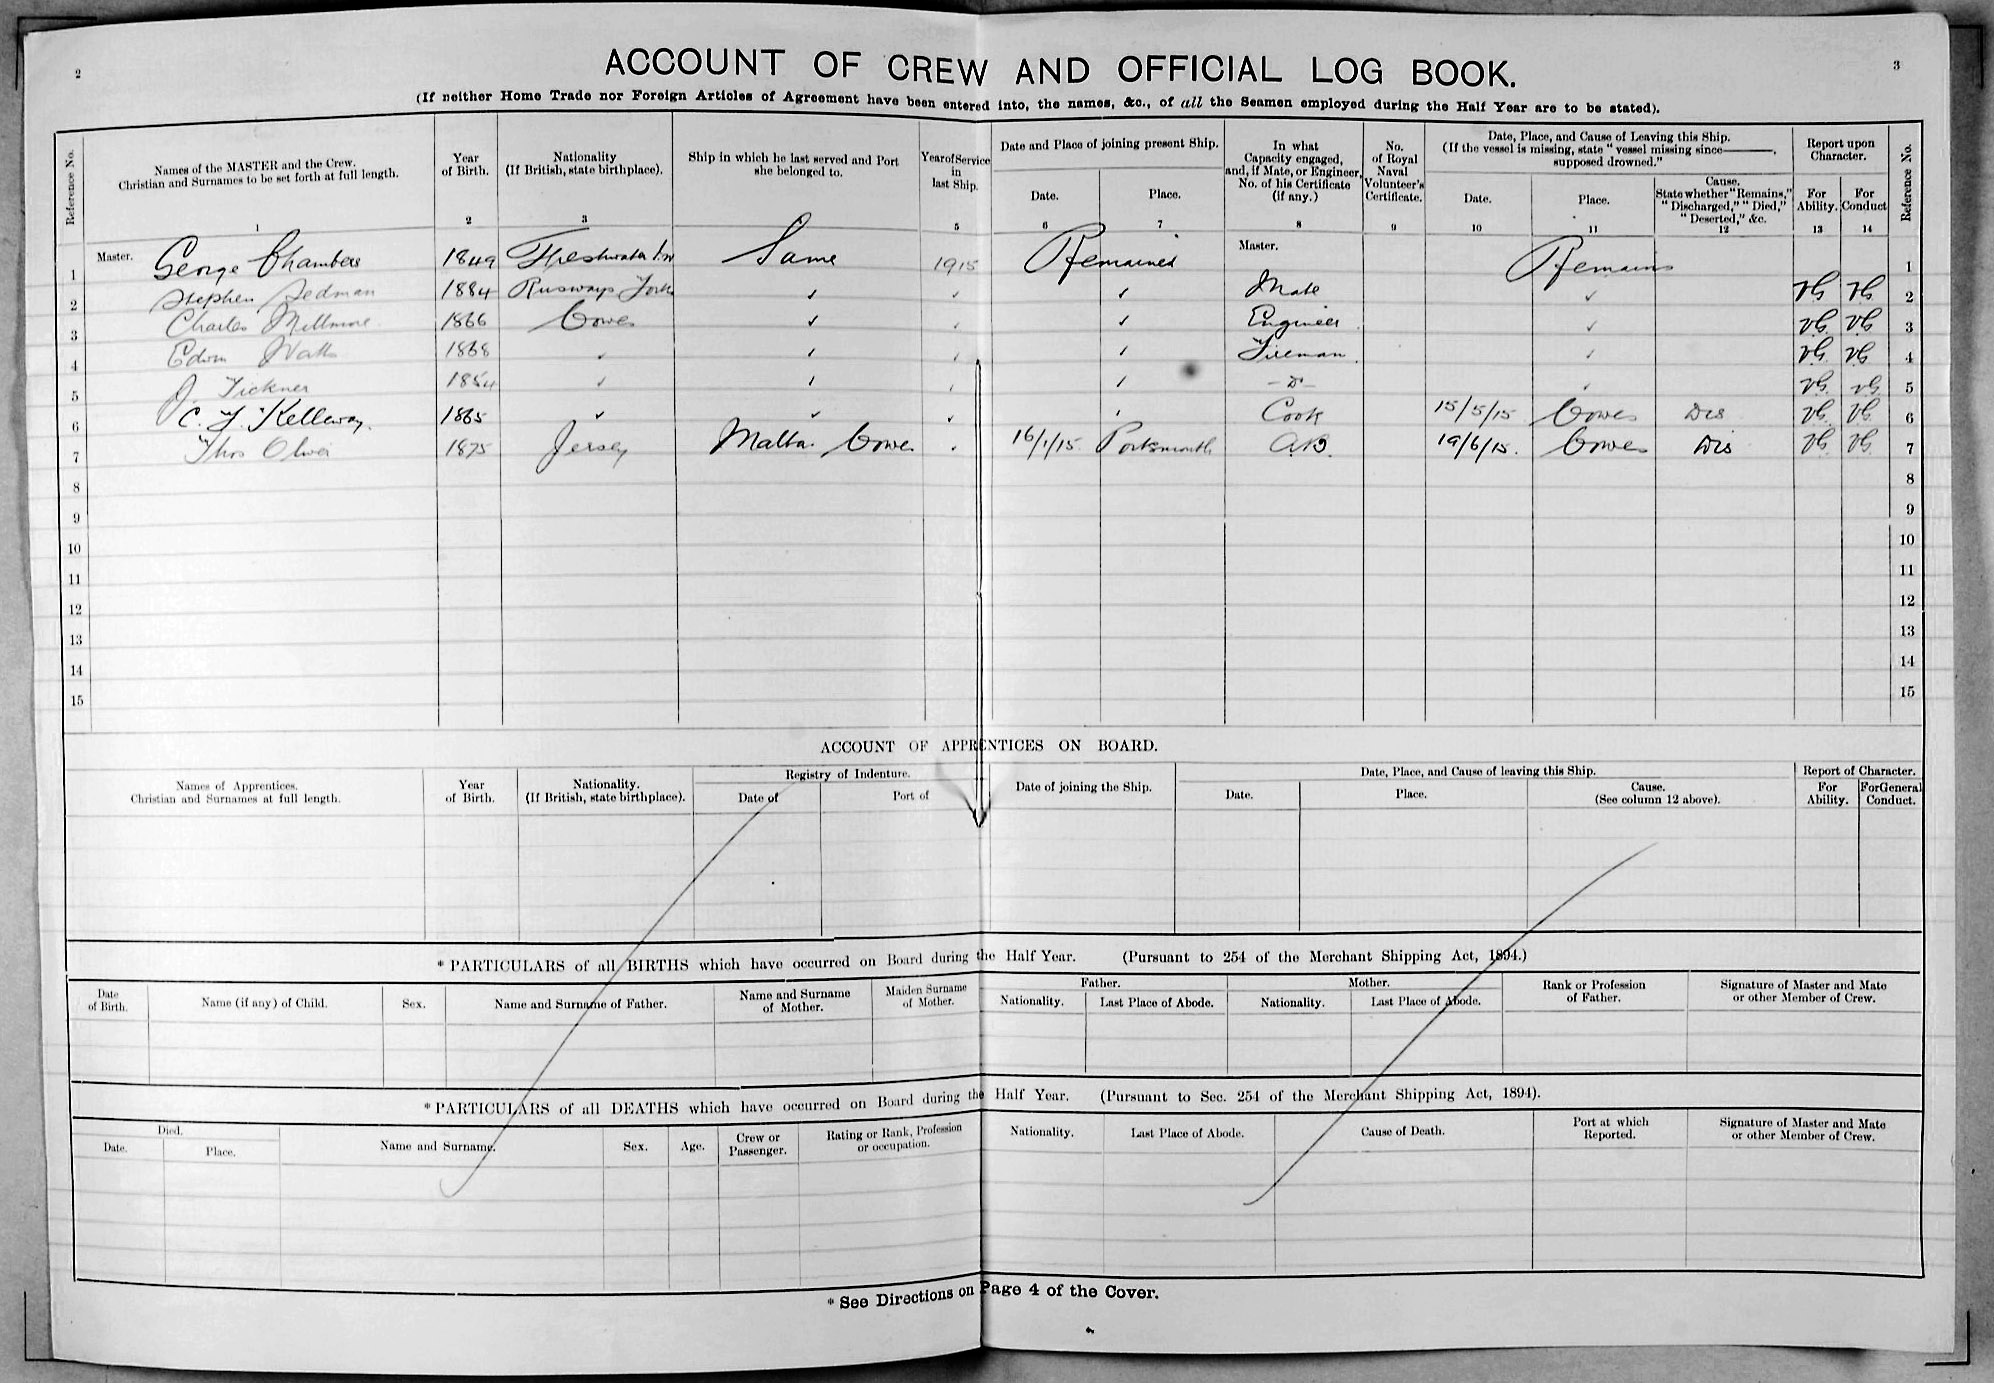 2
3
ACCOUNT OF CREW AND OFFICIAL LOG BOOK.
(If neither Home Trade nor Foreign Articles of Agreement have been entered into, the names, &c., of all the Seamen employed during the Half Year are to be stated).
Reference No.
Names of the MASTER and the Crew.
Christian and Surnames to be set forth at full length.
1
Year
of Birth.
2
Nationality
(If British, state birthplace).
3
Ship in which he last served and Port
she belonged to.
Year of Service
in
last Ship.
5
Date and Place of joining present Ship.
Date.
6
Place.
7
In what
Capacity engaged,
and, if Mate, or Engineer,
No. of his Certificate
(if any.)
8
No.
of Royal
Naval
Volunteer's
Certificate.
9
Date, Place, and Cause of Leaving this Ship.
(If the vessel is missing, state "vessel missing since———,
supposed drowned."
Date.
10
Place.
11
Cause.
State whether "Remains,"
"Discharged," "Died,"
"Deserted," &c.
12
Report upon
Character.
For
Ability.
13
For
Conduct
14
Reference No.
1 Master. George Chambers 1849 Freshwater I.W Same 1915 Remained Master. Remains 1
2 Stephen Sedman 1884 Rusways Yorks ✓ ✓ ✓ Mate ✓ VG VG 2
3 Charles Millmore 1866 Cowes ✓ ✓ ✓ Engineer ✓ VG. VG 3
4 Edwin Watts 1868 ✓ ✓ ✓ ✓ Fireman ✓ VG. VG 4
5 J. Tickner 1854 ✓ ✓ ✓ ✓ -Do- ✓ VG. VG. 5
6 C. F. Kelleway. 1865 ✓ ✓ ✓ ✓ Cook 15/5/15 Cowes Dis VG. VG. 6
7 Thos Oliver 1875 Jersey Malta. Cowes ✓ 16/1/15 Portsmouth A.B. 19/6/15. Cowes Dis VG. VG. 7
8 8
9 9
10 10
11 11
12 12
13 13
14 14
15 15
ACCOUNT OF APPRENTICES ON BOARD.
Names of Apprentices.
Christian and Surnames at full length.
Year
of Birth.
Nationality.
(If British, state birthplace).
Registry of Indenture.
Date of
Port of
Date of joining the Ship.
Date, Place, and Cause of leaving this Ship.
Date.
Place.
Cause.
(See column 12 above).
Report of Character.
For
Ability.
For General
Conduct.
* PARTICULARS of all BIRTHS which have occurred on Board during the Half Year. (Pursuant to 254 of the Merchant Shipping Act, 1894.)
Date
of Birth.
Name (if any) of Child.
Sex.
Name and Surname of Father.
Name and Surname
of Mother.
Maiden Surname
of Mother.
Father.
Nationality.
Last Place of Abode.
Mother.
Nationality.
Last Place of Abode.
Rank or Profession
of Father.
Signature of Master and Mate
or other Member of Crew.
* PARTICULARS of all DEATHS which have occurred on Board during the Half Year. (Pursuant to Sec. 254 of the Merchant Shipping Act, 1894).
Died.
Date.
Place.
Name and Surname.
Sex.
Age.
Crew or
Passenger.
Rating or Rank, Profession
or occupation.
Nationality.
Last Place of Abode.
Cause of Death.
Port at which
Reported.
Signature of Master and Mate
or other Member of Crew.
* See Directions on Page 4 of the Cover.